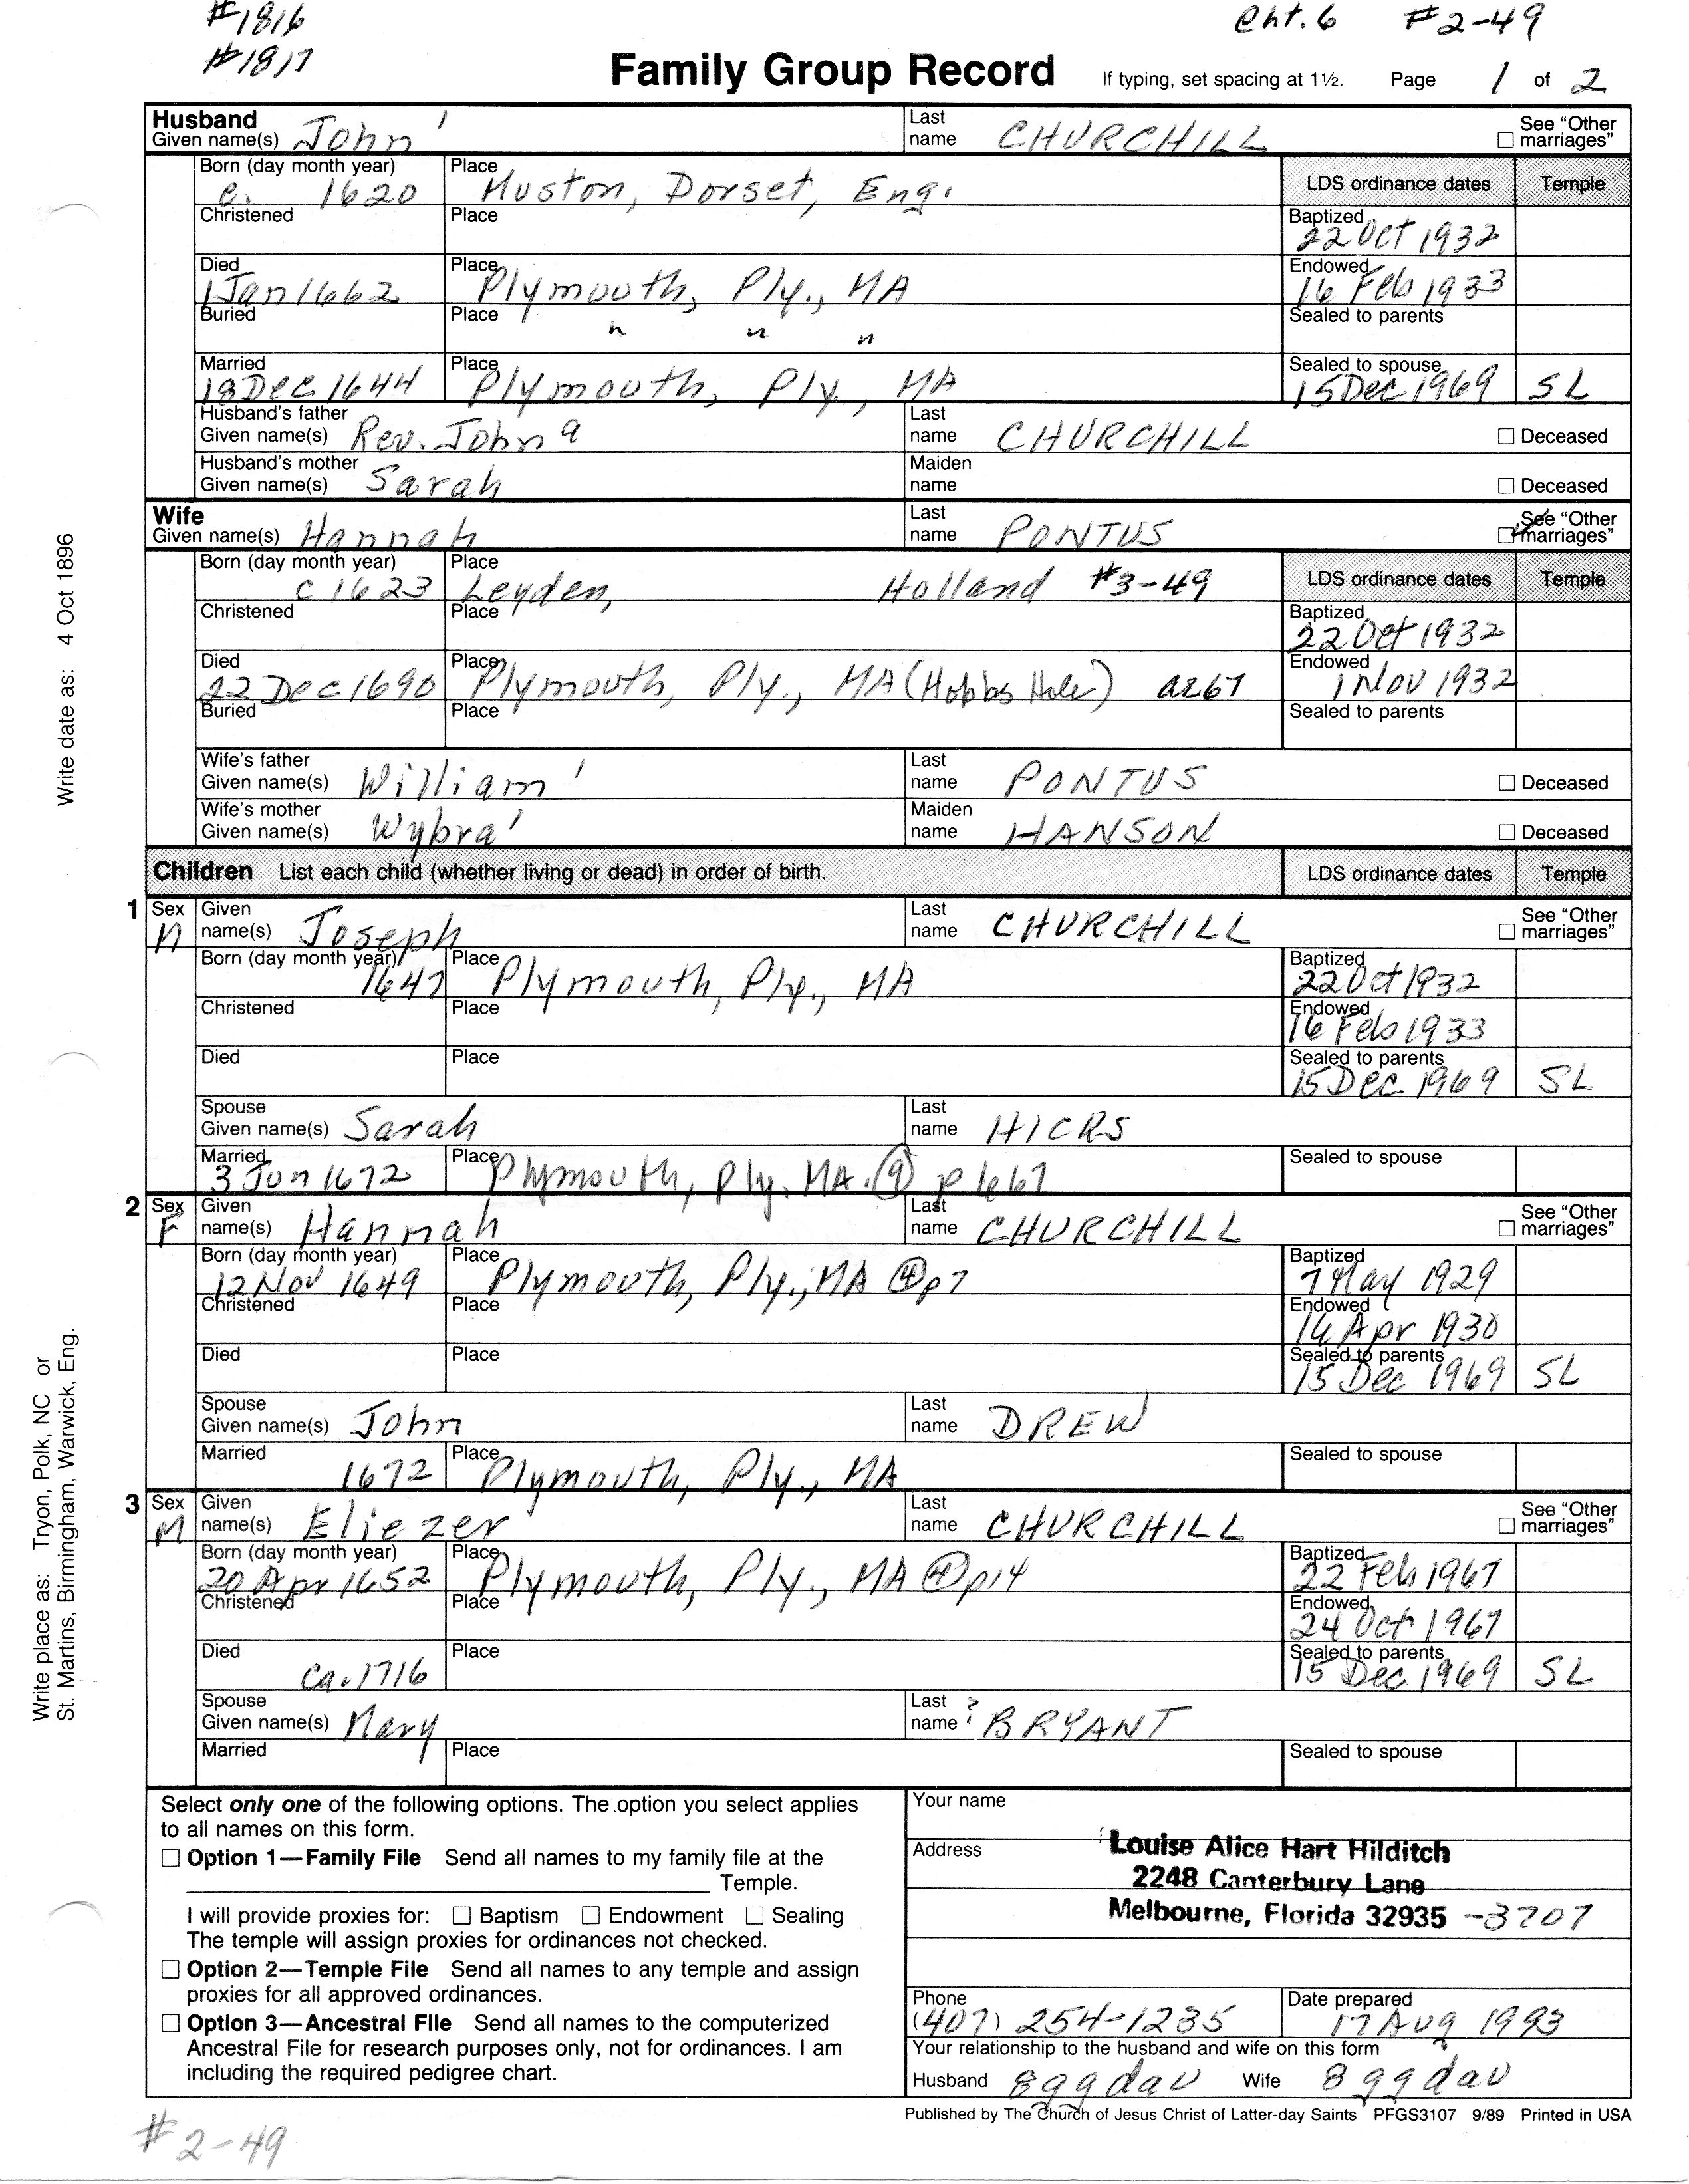 #1816
Cht. 6 #2-49
#1817
Family Group Record If typing, set spacing at 1½. Page 1 of 2
Husband
Given name(s) John 1 Last name CHURCHILL See "Other marriages"
Born (day month year) Place LDS ordinance dates Temple
c. 1620 Muston, Dorset, Eng.
Christened Place Baptized
22 Oct 1932
Died Place Endowed
1 Jan 1662 Plymouth, Ply., MA 16 Feb 1933
Buried Place " " " Sealed to parents
Married Place Sealed to spouse
18 Dec 1644 Plymouth, Ply., MA 15 Dec 1969 SL
Husband's father
Given name(s) Rev. John a Last name CHURCHILL Deceased
Husband's mother
Given name(s) Sarah Maiden name Deceased
Wife
Given name(s) Hannah Last name PONTUS See "Other marriages"
Born (day month year) Place LDS ordinance dates Temple
c 1623 Leyden, Holland #3-49
Christened Place Baptized
22 Oct 1932
Died Place Endowed
22 Dec 1690 Plymouth, Ply., MA (Hobbs Hole) ae67 1 Nov 1932
Buried Place Sealed to parents
Wife's father
Given name(s) William 1 Last name PONTUS Deceased
Wife's mother
Given name(s) Wybra 1 Maiden name HANSON Deceased
Children List each child (whether living or dead) in order of birth. LDS ordinance dates Temple
1 Sex M Given name(s) Joseph Last name CHURCHILL See "Other marriages"
Born (day month year) Place Baptized
1647 Plymouth, Ply., MA 22 Oct 1932
Christened Place Endowed
16 Feb 1933
Died Place Sealed to parents
15 Dec 1969 SL
Spouse
Given name(s) Sarah Last name HICKS
Married Place Sealed to spouse
3 Jun 1672 Plymouth, Ply. MA. (9) p 1667
2 Sex F Given name(s) Hannah Last name CHURCHILL See "Other marriages"
Born (day month year) Place Baptized
12 Nov 1649 Plymouth, Ply., MA (4) p7 7 May 1929
Christened Place Endowed
14 Apr 1930
Died Place Sealed to parents
15 Dec 1969 SL
Spouse
Given name(s) John Last name DREW
Married Place Sealed to spouse
1672 Plymouth, Ply., MA
3 Sex M Given name(s) Eliezer Last name CHURCHILL See "Other marriages"
Born (day month year) Place Baptized
20 Apr 1652 Plymouth, Ply., MA (4) p14 22 Feb 1967
Christened Place Endowed
24 Oct 1967
Died Place Sealed to parents
ca. 1716 15 Dec 1969 SL
Spouse
Given name(s) Mary Last name ? BRYANT
Married Place Sealed to spouse
Select only one of the following options. The option you select applies
to all names on this form.
Option 1—Family File Send all names to my family file at the
Temple.
I will provide proxies for: Baptism Endowment Sealing
The temple will assign proxies for ordinances not checked.
Option 2—Temple File Send all names to any temple and assign
proxies for all approved ordinances.
Option 3—Ancestral File Send all names to the computerized
Ancestral File for research purposes only, not for ordinances. I am
including the required pedigree chart.
Your name
Address Louise Alice Hart Hilditch
2248 Canterbury Lane
Melbourne, Florida 32935 -3707
Phone Date prepared
(407) 254-1235 17 Aug 1993
Your relationship to the husband and wife on this form
Husband 8ggdau Wife 8ggdau
Published by The Church of Jesus Christ of Latter-day Saints PFGS3107 9/89 Printed in USA
#2-49
Write date as: 4 Oct 1896
Write place as: Tryon, Polk, NC or
St. Martins, Birmingham, Warwick, Eng.